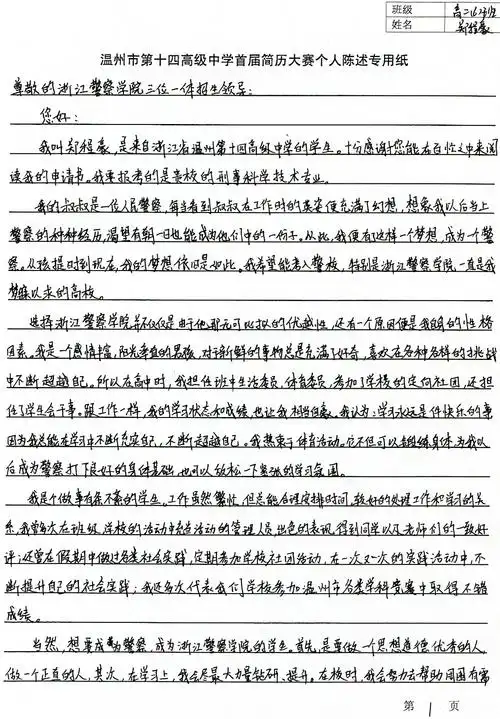 班级 高二(6)班
姓名
温州市第十四高级中学首届简历大赛个人陈述专用纸
尊敬的浙江警察学院三位一体招生领导:
您好:
我叫郑程豪,是来自浙江省温州第十四高级中学的学生。十分感谢您能在百忙之中来阅
读我的申请书。我要报考的是贵校的刑事科学技术专业。
我的叔叔是一位人民警察,每当看到叔叔在工作时的英姿便充满了幻想,想象我以后当上
警察的种种经历,渴望有朝一日也能成为他们中的一份子。从此,我便有了这样一个梦想,成为一个警
察。从孩提时到现在,我的梦想依旧是如此。我希望能考入警校,特别是浙江警察学院,一直是我
梦寐以来的高校。
选择浙江警察学院并不仅仅是由于他那无可比拟的优越性,还有一个原因便是我自身的性格
因素。我是个感情丰富,阳光率直的男孩,对于新鲜的事物总是充满了好奇,喜欢在各种各样的挑战
中不断超越自己。所以在高中时,我担任班中生活委员,体育委员,参加了学校的定向社团,还担
任了学生会干事。跟工作一样,我的学习状态和成绩也让我相当自豪。我认为:学习永远是件快乐的事
因为我总能在学习中不断充实自己,不断超越自己。我热衷于体育活动。它不但可以锻炼身体,为我以
后成为警察打下良好的身体基础,也可以放松一下紧张的学习氛围。
我是个做事有条不紊的学生。工作虽然繁忙,但总能合理安排时间,较好的处理工作和学习的关
系,我曾多次在班级、学校的活动中充当活动的管理人员,出色的表现,得到同学以及老师们的一致好
评;还曾在假期中做过各类社会实践,定期参加学校社团活动,在一次又一次的实践活动中,不
断提升自己的社会实践;我还多次代表我们学校参加温州市各类学科竞赛中取得不错
成绩。
当然,想要成为警察,成为浙江警察学院的学生。首先,是要做一个思想道德优秀的人,
做一个正直的人,其次,在学习上,我会尽最大力量钻研、提升。在校时,我会努力去帮助周围有需
第 1 页